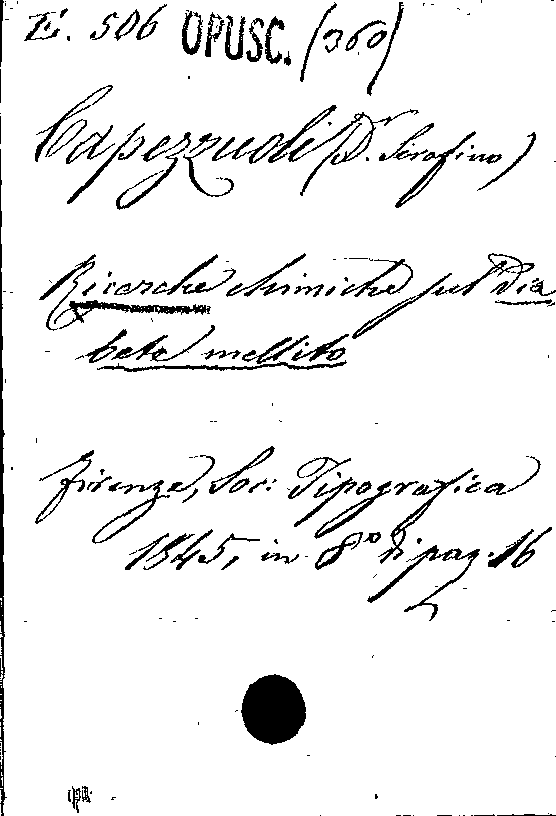 E. 506 OPUSC. (360)
Capezzuoli (Dr. Serafino)
Ricerche chimiche sul Dia
bete mellito
Firenze, Soc: Tipografica
1845, in 8° di pag. 16